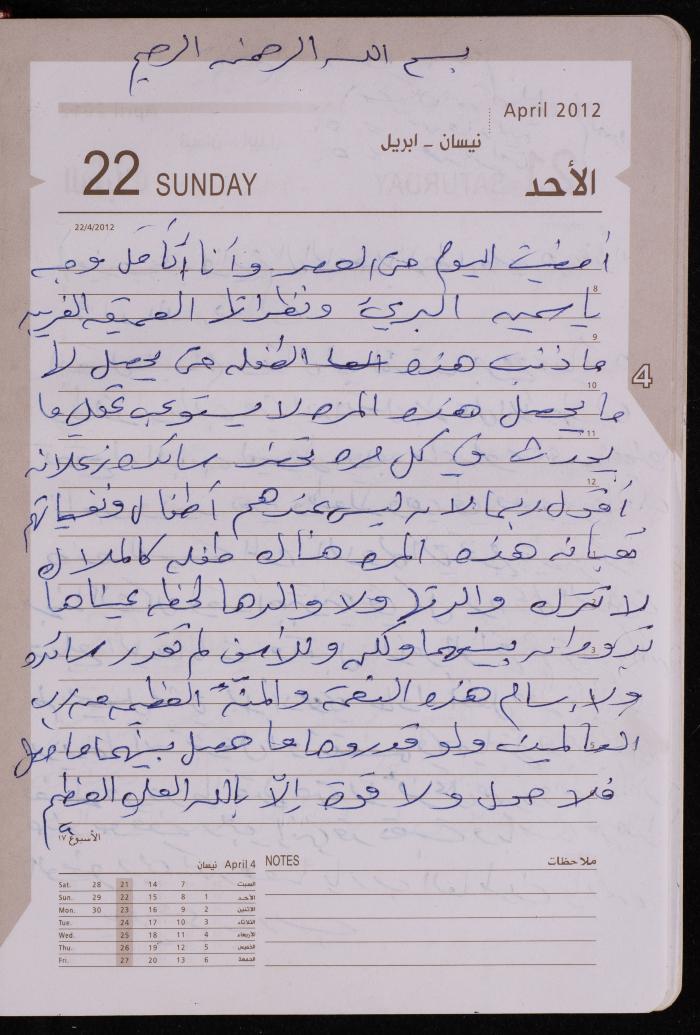 بسم الله الرحمن الرحيم
April 2012
نيسان - ابريل
22 SUNDAY
الأحد
22/4/2012
أمضيت اليوم حتى العصر وأنا أتأمل وجه
8
ياسمين البريئ ونظراتها العميقه الغريبه
9
ما ذنب هذه الطفله حتى يحصل لها
10
ما يحصل هذه المره لا يستوعب عقلي ما
11
يحدث في كل مره تحضر سائده زعلانه
12
أقول ربما لانه ليس عندهم أطفال ونفسياتهم
تعبانه هذه المره هناك طفله كالملاك
لا تترك والدتها ولا والدها لحظه عيناها
3
تدوران بينهما ولكن وللأسف لم تقدر سائده
ولا بسام هذه النعمة والمنّة العظيمه من رب
العالمين ولو قدروها ما حصل بينهما ما حصل
فلا حول ولا قوة إلّا بالله العلي العظيم
4
الأسبوع ١٧
نيسان April 4
NOTES
ملاحظات
Sat. 28 21 14 7 السبت
Sun. 29 22 15 8 1 الأحد
Mon. 30 23 16 9 2 الاثنين
Tue. 24 17 10 3 الثلاثاء
Wed. 25 18 11 4 الأربعاء
Thu. 26 19 12 5 الخميس
Fri. 27 20 13 6 الجمعة